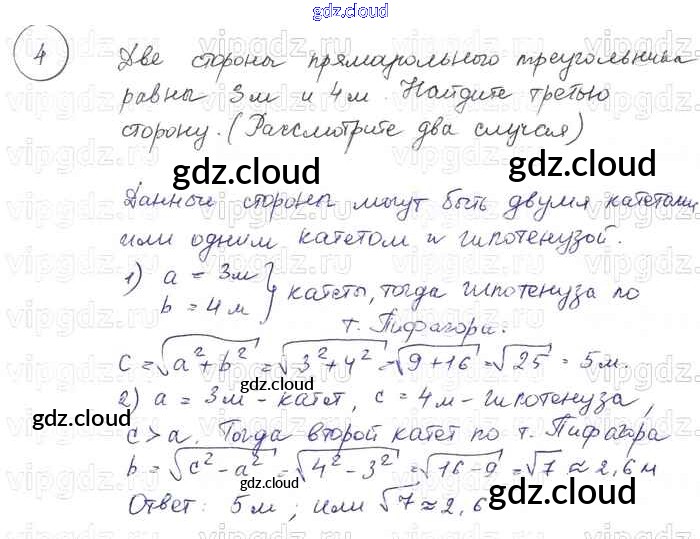 gdz.cloud
4 Две стороны прямоугольного треугольника
равны 3м и 4м. Найдите третью
сторону. (Рассмотрите два случая)
gdz.cloud gdz.cloud
Данные стороны могут быть двумя катетами
или одним катетом и гипотенузой.
1) a = 3м
b = 4м } катеты, тогда гипотенуза по
т. Пифагора:
c = √a²+b² = √3²+4² = √9+16 = √25 = 5м.
gdz.cloud
2) a = 3м - катет, c = 4м - гипотенуза,
gdz.cloud gdz.cloud
c > a. Тогда второй катет по т. Пифагора
b = √c²-a² = √4²-3² = √16-9 = √7 ≈ 2,6 м
gdz.cloud gdz.cloud
Ответ: 5м; или √7 ≈ 2,6